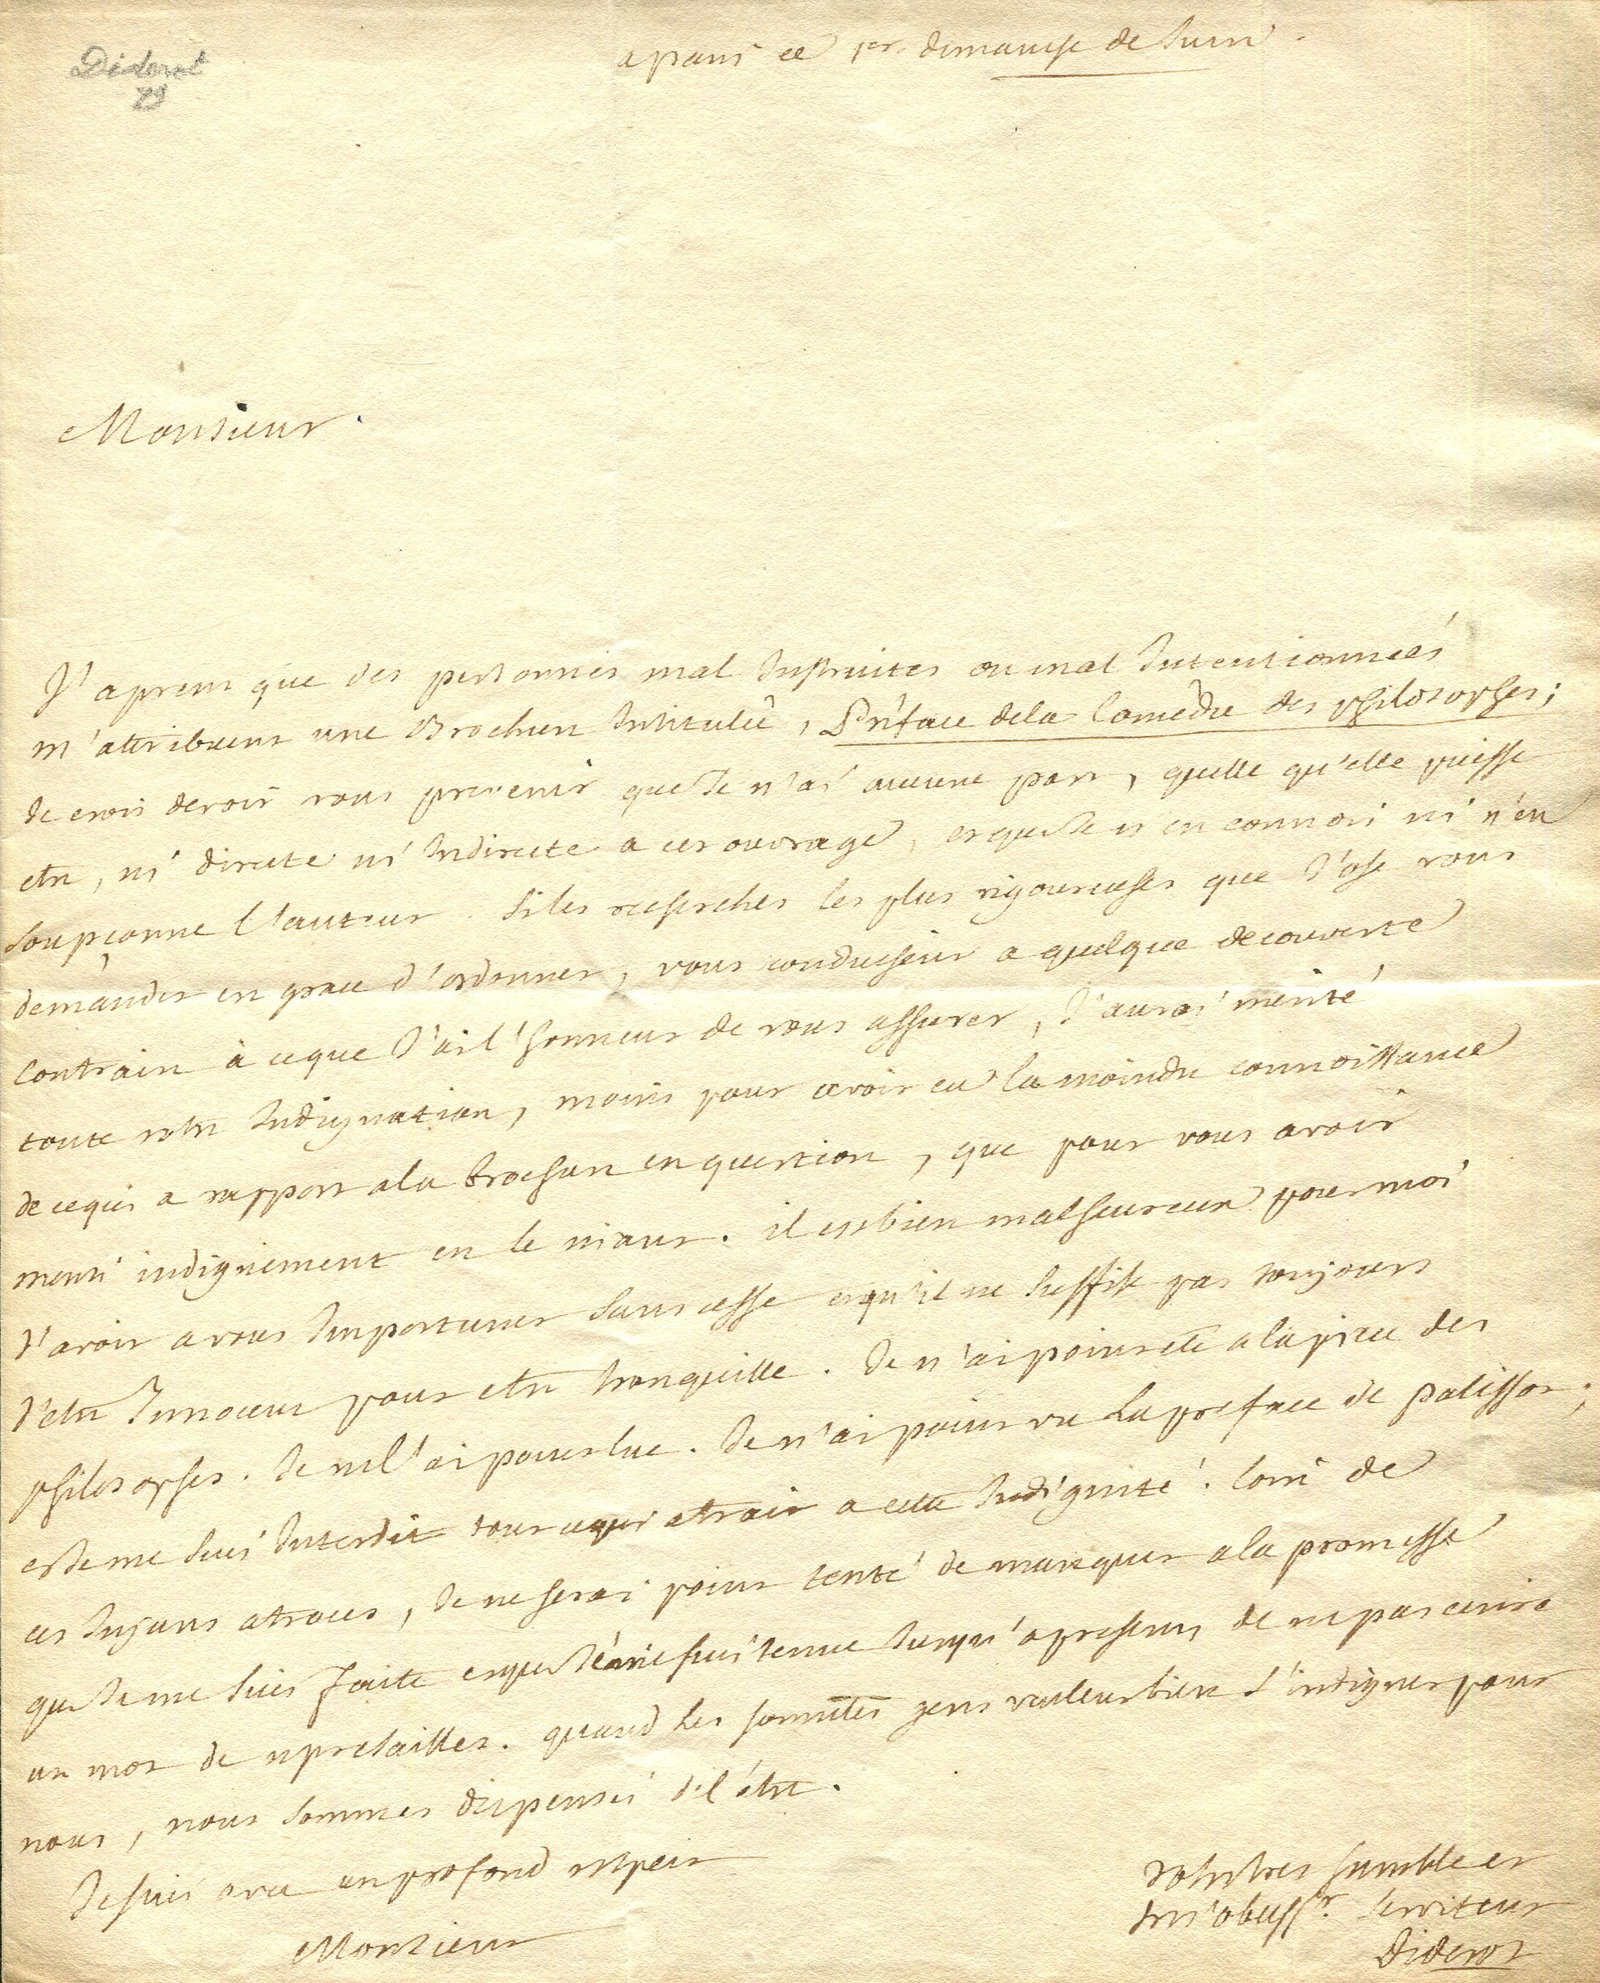 Diderot
79
a paris ce 1er. dimanche de Juin.
Monsieur.
J'aprens que des personnes mal Instruites ou mal Intentionnées
m'attribuent une Brochure Intitulée, Préface dela Comédie des philosophes;
Je crois devoir vous prevenir que Je n'ai aucune part, quelle qu'elle puisse
etre, ni directe ni Indirecte a cet ouvrage, et que Je n'en connois ni n'en
soupçonne l'auteur. Si les recherches les plus rigoureuses que J'ose vous
demander en grace d'ordonner, vous conduisent a quelque decouverte
contraire à ce que J'ai l'honneur de vous assurer, J'aurai merité
toute votre Indignation, moins pour avoir eu la moindre connoissance
de cequi a rapport ala brochure en question, que pour vous avoir
menti indignement en le niant. il est bien malheureux pour moi
d'avoir a vous Importuner sans cesse et qu'il ne suffise pas toujours
d'etre Innocent pour etre tranquille. Je n'ai point eté a la piece des
philosophes. Je ne l'ai point lue. Je n'ai point vu la preface de palissot;
et Je me suis Interdit tout cequi a trait a cette Indignité. loin de
ces Injures atroces, Je ne serai point tenté de manquer a la promesse
que Je me suis faite et que Je me suis tenue Jusqu'a present, de ne pas ecrire
un mot de represailles. quand les honnetes gens veulent bien s'indigner pour
nous, nous sommes dispensés de l'etre.
Je suis avec un profond respect
Monsieur
Votre tres humble et
tres obeissr. serviteur
Diderot